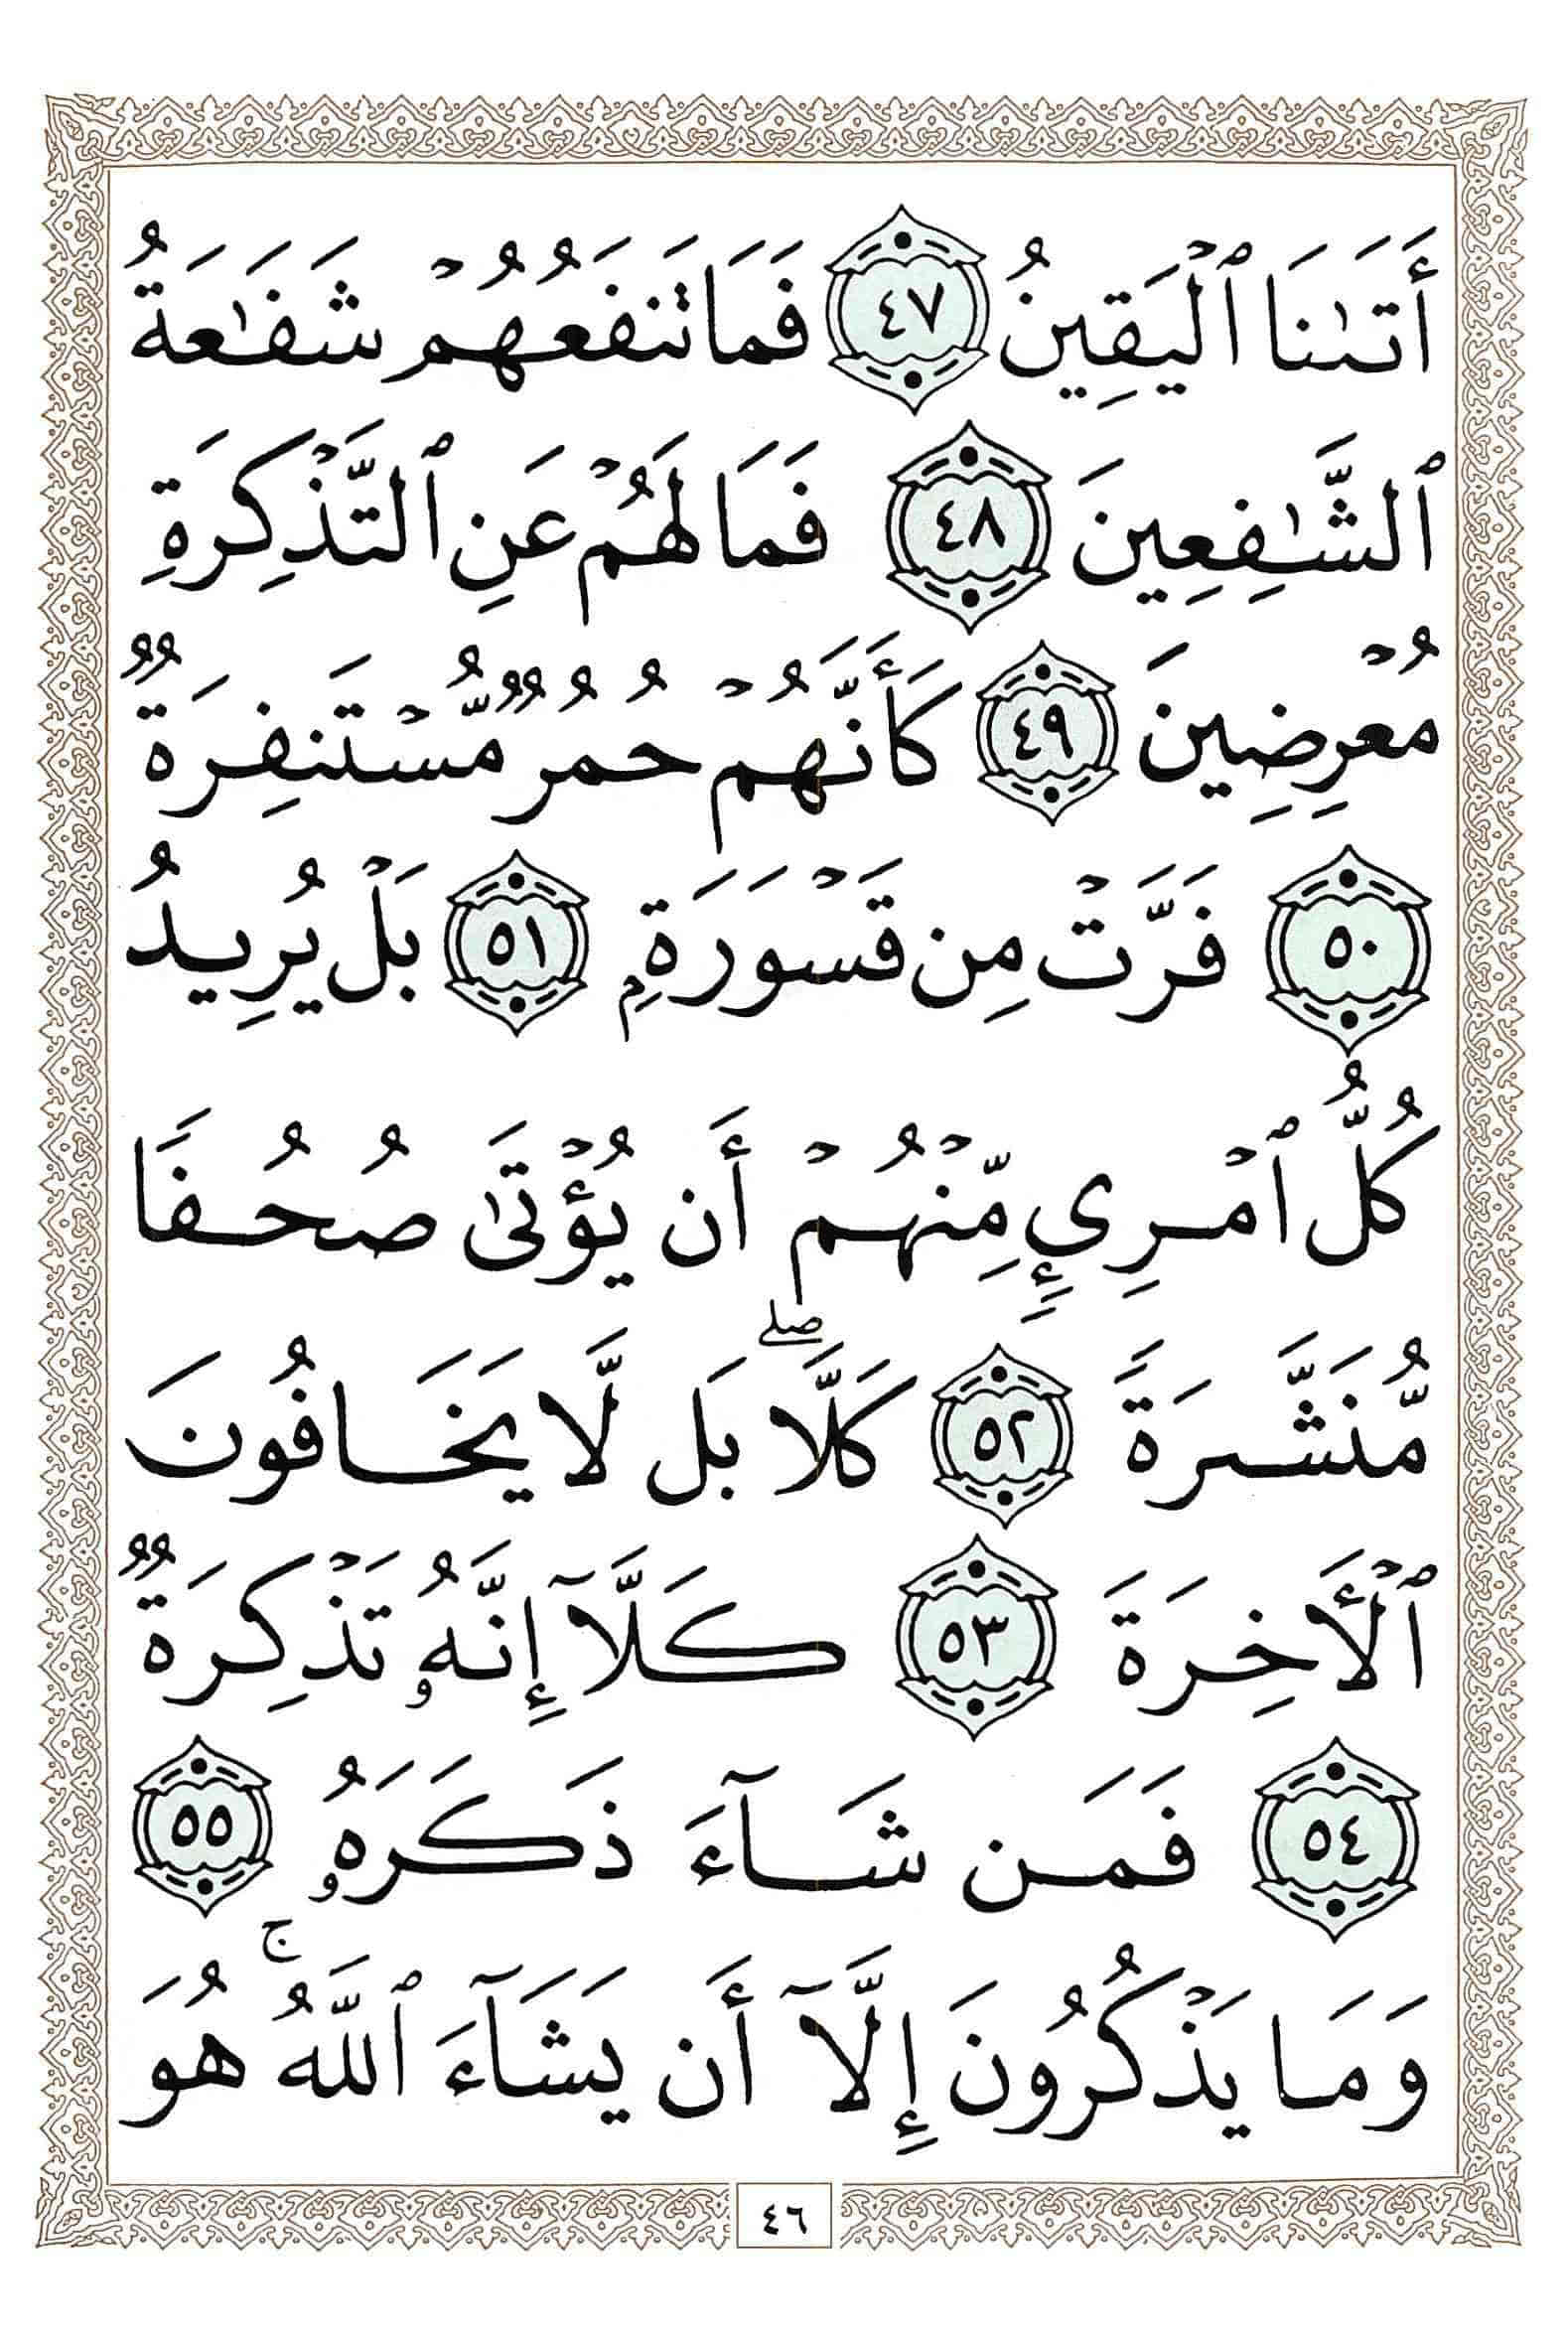 أَتَىٰنَا ٱلْيَقِينُ ٤٧ فَمَا تَنفَعُهُمْ شَفَٰعَةُ
ٱلشَّٰفِعِينَ ٤٨ فَمَا لَهُمْ عَنِ ٱلتَّذْكِرَةِ
مُعْرِضِينَ ٤٩ كَأَنَّهُمْ حُمُرٌ مُّسْتَنفِرَةٌ
٥٠ فَرَّتْ مِن قَسْوَرَةٍۭ ٥١ بَلْ يُرِيدُ
كُلُّ ٱمْرِئٍ مِّنْهُمْ أَن يُؤْتَىٰ صُحُفًا
مُّنَشَّرَةً ٥٢ كَلَّا ۖ بَل لَّا يَخَافُونَ
ٱلْأَخِرَةَ ٥٣ كَلَّآ إِنَّهُۥ تَذْكِرَةٌ
٥٤ فَمَن شَآءَ ذَكَرَهُۥ ٥٥
وَمَا يَذْكُرُونَ إِلَّآ أَن يَشَآءَ ٱللَّهُ ۚ هُوَ
٤٦